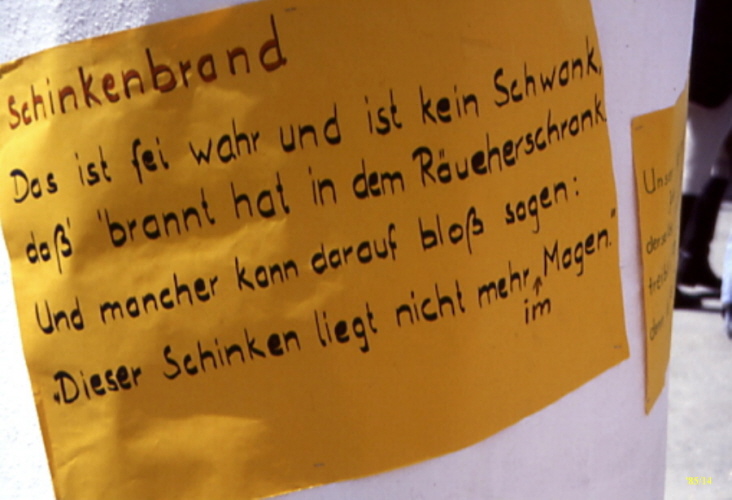 Schinkenbrand
Das ist fei wahr und ist kein Schwank,
daß' 'brannt hat in dem Räucherschrank
Und mancher kann darauf bloß sagen:
"Dieser Schinken liegt nicht mehr Magen."
im